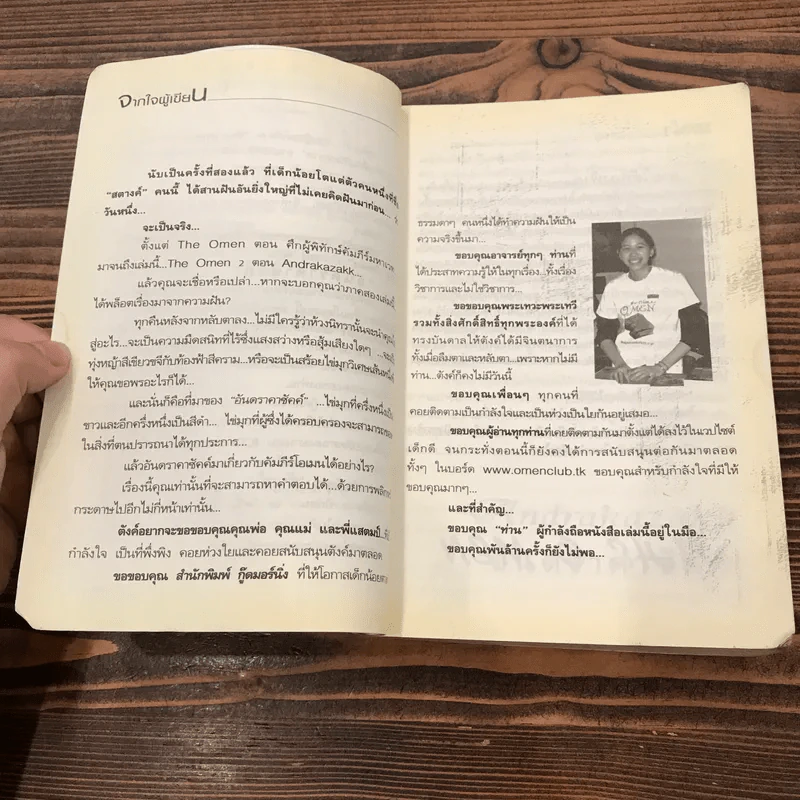 จากใจผู้เขียน
นับเป็นครั้งที่สองแล้ว ที่เด็กน้อยโตแต่ตัวคนหนึ่งที่ชื่อ
“สตางค์” คนนี้ ได้สานฝันอันยิ่งใหญ่ที่ไม่เคยคิดฝันมาก่อน...
วันหนึ่ง...
จะเป็นจริง...
ตั้งแต่ The Omen ตอน ศึกผู้พิทักษ์คัมภีร์มหาเวท
มาจนถึงเล่มนี้...The Omen 2 ตอน Andrakazakk...
แล้วคุณจะเชื่อหรือเปล่า...หากจะบอกคุณว่าภาคสองเล่มนี้
ได้พล็อตเรื่องมาจากความฝัน?
ทุกคืนหลังจากหลับตาลง...ไม่มีใครรู้ว่าห้วงนิทรานั้นจะนำ
สู่อะไร...จะเป็นความมืดสนิทที่ไร้ซึ่งแสงสว่างหรือสุ้มเสียงใดๆ
ทุ่งหญ้าสีเขียวขจีกับท้องฟ้าสีคราม...หรือจะเป็นสร้อยไข่มุกวิเศษเส้นหนึ่ง
ให้คุณขอพรอะไรก็ได้...
และนั่นก็คือที่มาของ “อันดราคาซัคค์” ...ไข่มุกที่ครึ่งหนึ่งเป็น
ขาวและอีกครึ่งหนึ่งเป็นสีดำ... ไข่มุกที่ผู้ซึ่งได้ครอบครองจะสามารถขอ
ในสิ่งที่ตนปรารถนาได้ทุกประการ...
แล้วอันดราคาซัคค์มาเกี่ยวกับคัมภีร์โอเมนได้อย่างไร?
เรื่องนี้คุณเท่านั้นที่จะสามารถหาคำตอบได้...ด้วยการพลิก
กระดาษไปอีกไม่กี่หน้าเท่านั้น...
ตังค์อยากจะขอขอบคุณคุณพ่อ คุณแม่ และพี่แสตมป์
กำลังใจ เป็นที่พึ่งพิง คอยห่วงใยและคอยสนับสนุนตังค์มาตลอด
ขอขอบคุณ สำนักพิมพ์ กู๊ดมอร์นิ่ง ที่ให้โอกาสเด็กน้อย
ธรรมดาๆ คนหนึ่งได้ทำความฝันให้เป็น
ความจริงขึ้นมา...
ขอบคุณอาจารย์ทุกๆ ท่านที่
ได้ประสาทความรู้ให้ในทุกเรื่อง...ทั้งเรื่อง
วิชาการและไม่ใช่วิชาการ...
ขอขอบคุณพระเทวะพระเทวี
รวมทั้งสิ่งศักดิ์สิทธิ์ทุกพระองค์ที่ได้
ทรงบันดาลให้ตังค์ได้มีจินตนาการ
ทั้งเมื่อลืมตาและหลับตา...เพราะหากไม่มี
ท่าน...ตังค์ก็คงไม่มีวันนี้
ขอบคุณเพื่อนๆ ทุกคนที่
คอยติดตามเป็นกำลังใจและเป็นห่วงเป็นใยกันอยู่เสมอ...
ขอบคุณผู้อ่านทุกท่านที่เคยติดตามกันมาตั้งแต่ได้ลงไว้ในเวปไซต์
เด็กดี จนกระทั่งตอนนี้ก็ยังคงได้การสนับสนุนต่อกันมาตลอด
ทั้งๆ ในบอร์ด www.omenclub.tk ขอบคุณสำหรับกำลังใจที่มีให้
ขอบคุณมากๆ...
และที่สำคัญ...
ขอบคุณ “ท่าน” ผู้กำลังถือหนังสือเล่มนี้อยู่ในมือ...
ขอบคุณพันล้านครั้งก็ยังไม่พอ...